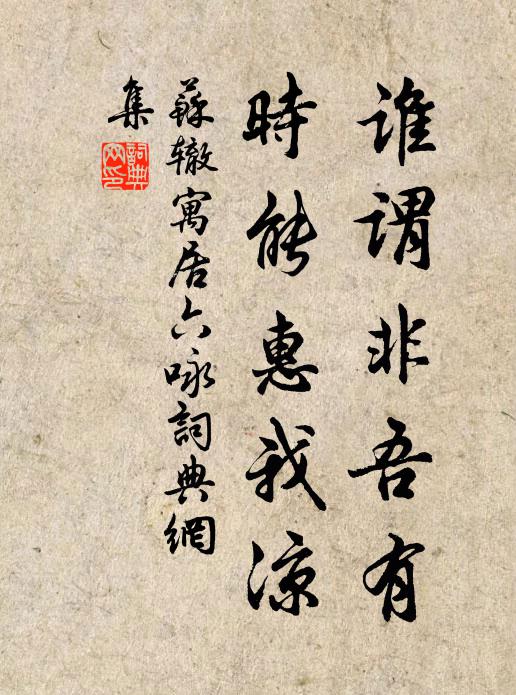 誰謂非吾有
時能惠我涼
蘇轍寓居六詠詞典網
集
詞典網印